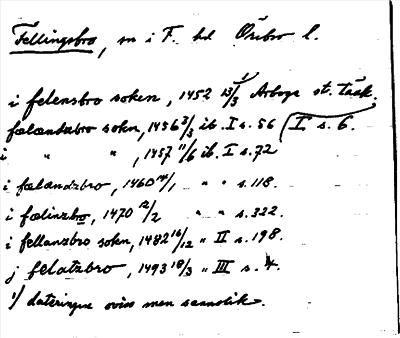 Fellingsbro, sn i F. hd Örebro l.
i felensbro soken, 1452 13/3 1/ Arboga st. tänk.
fælændzbro sokn, 1456 3/3 ib. I s. 56 (I s. 6.
i " " , 1457 11/6 ib. I s. 72
i fælandzbro, 1460 14/1 " " s. 118.
i fælinzbro, 1470 12/2 " " s. 322.
i fellanzbro sokn, 1482 16/12 " II s. 198.
j felatzbro, 1493 18/3 " III s. 4.
1/ dateringen oviss men sannolik.